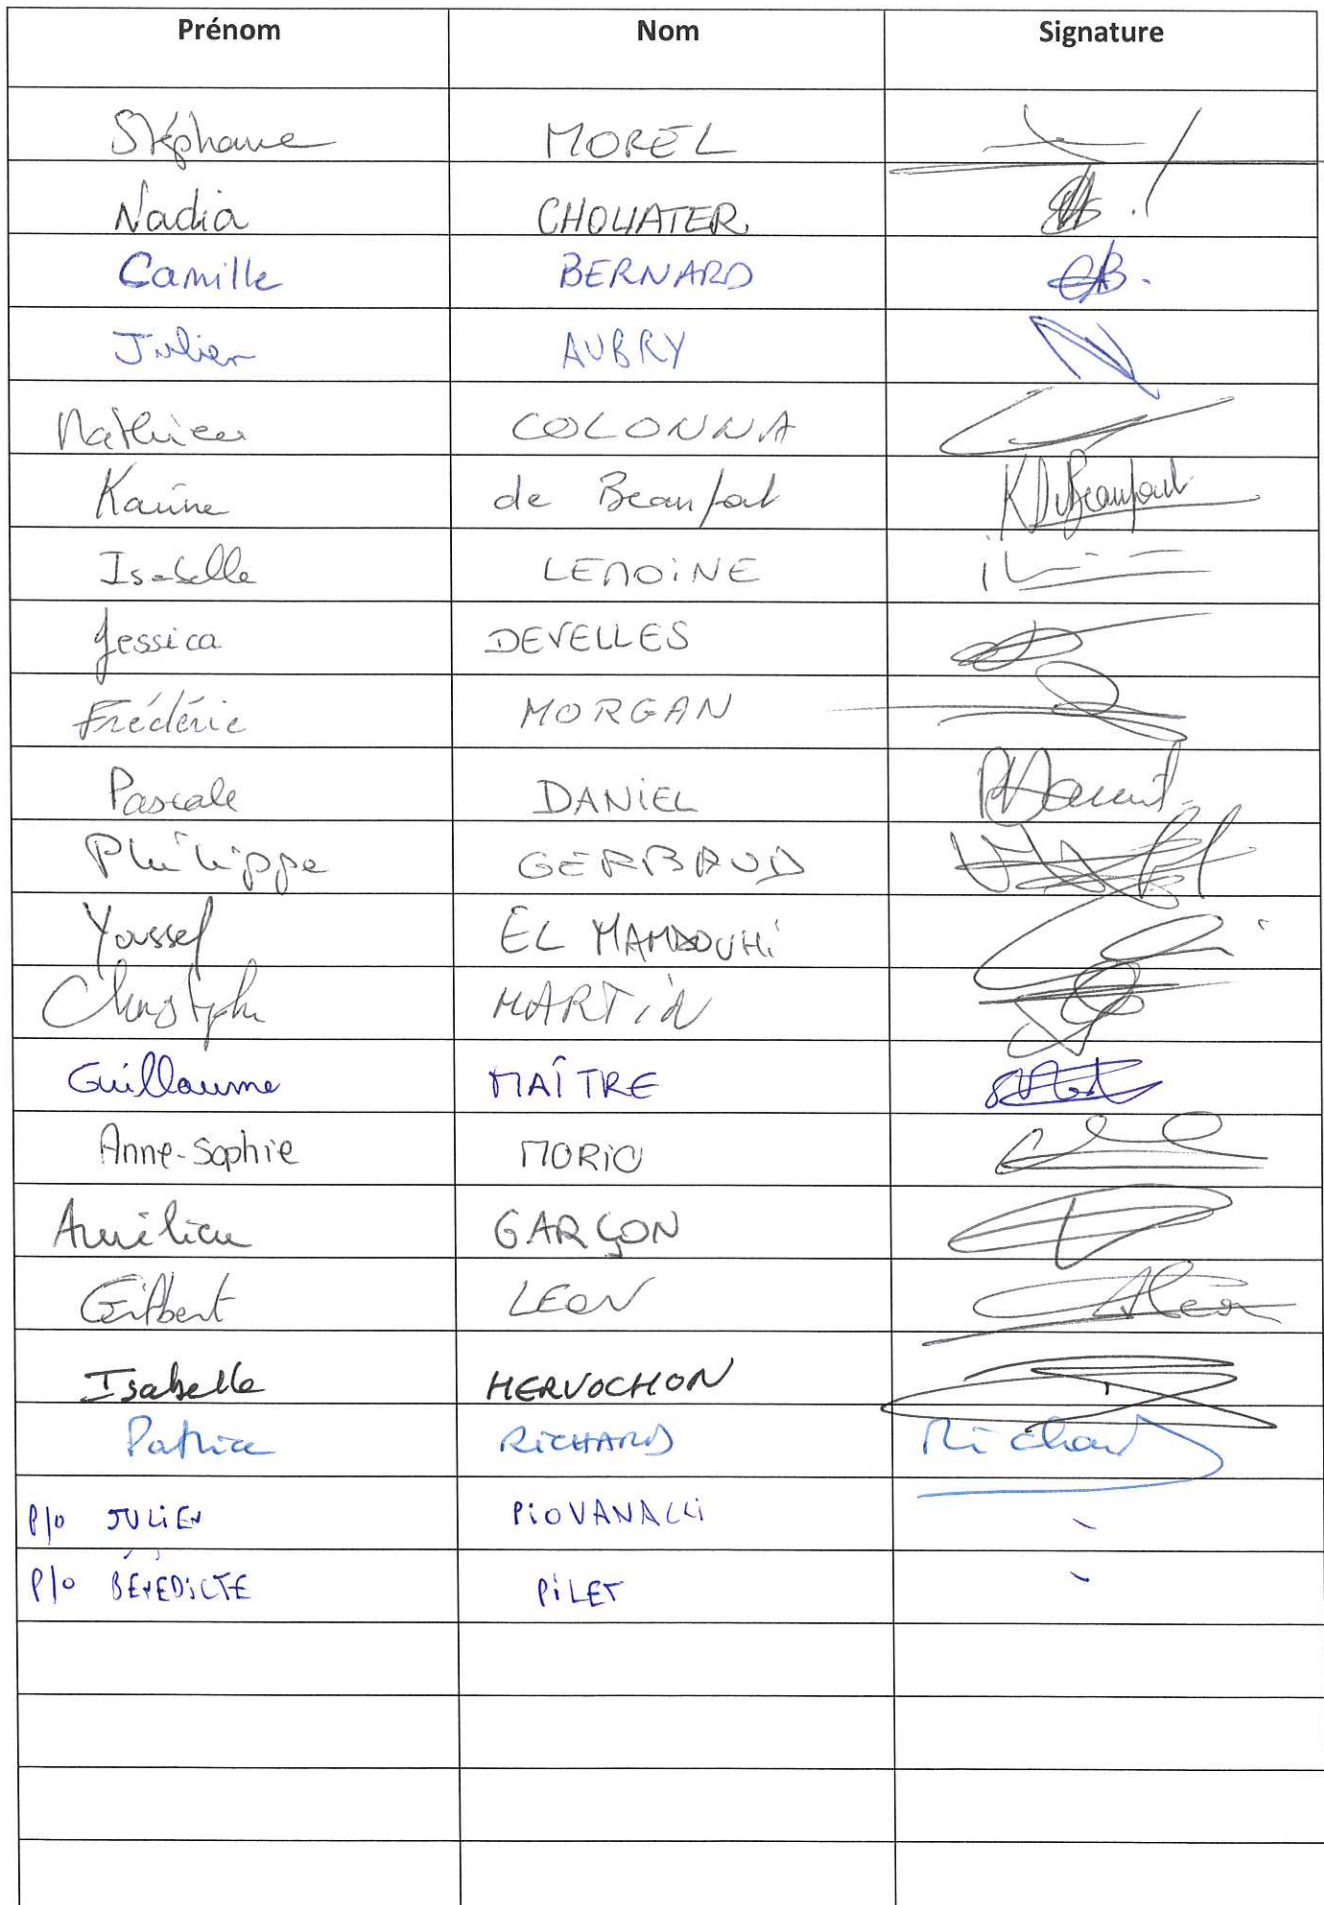 Prénom Nom Signature
Stéphane MOREL
Nadia CHOUATER
Camille BERNARD CB.
Julien AUBRY
Mathieu COLONNA
Karine de Beaufort K De Beaufort
Isabelle LEMOINE
Jessica DEVELLES
Frédéric MORGAN
Pascale DANIEL PDaniel
Philippe GERBAUD
Youssef EL MAMDOUHI
Christophe MARTIN
Guillaume MAÎTRE
Anne-Sophie MORIO
Aurélien GARÇON
Gilbert LEON Léon
Isabelle HERVOCHON
Patrice RICHARD Richard
P/o JULIEN PIOVANALLI
P/o BÉNÉDICTE PILET